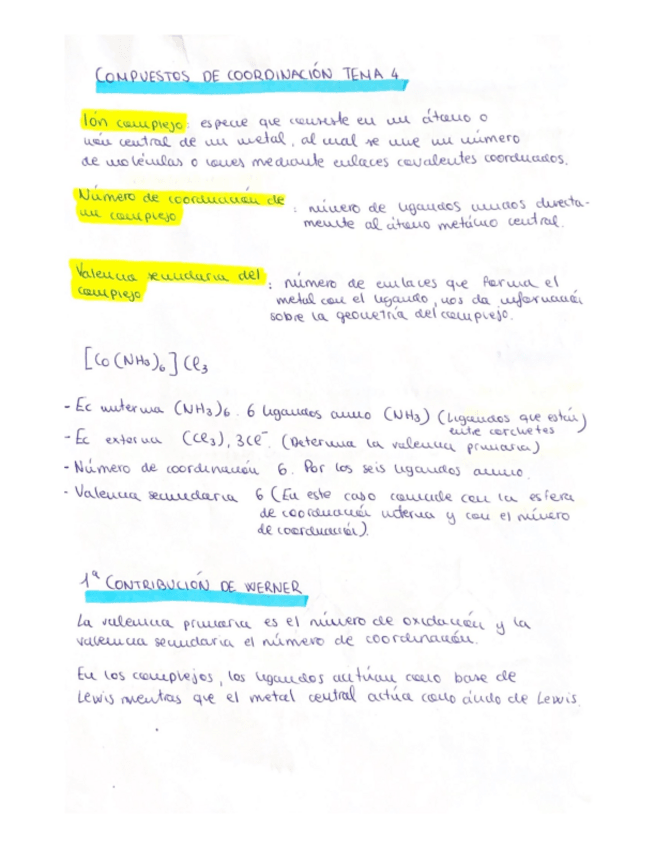 COMPUESTOS DE COORDINACIÓN TEMA 4
Ión complejo: especie que consiste en un átomo o
ión central de un metal, al cual se une un número
de moléculas o iones mediante enlaces covalentes coordinados.
Número de coordinación de
un complejo : número de ligandos unidos directa-
mente al átomo metálico central.
Valencia secundaria del
complejo : número de enlaces que forma el
metal con el ligando, nos da información
sobre la geometría del complejo.
[Co(NH3)6]Cl3
- Ec interna (NH3)6. 6 ligandos amino (NH3) (ligandos que están
entre corchetes)
- Ec externa (Cl3), 3Cl⁻. (Determina la valencia primaria)
- Número de coordinación 6. Por los seis ligandos amino.
- Valencia secundaria 6 (En este caso coincide con la esfera
de coordinación interna y con el número
de coordinación).
1ª CONTRIBUCIÓN DE WERNER
La valencia primaria es el número de oxidación y la
valencia secundaria el número de coordinación.
En los complejos, los ligandos actúan como base de
Lewis mientras que el metal central actúa como ácido de Lewis.